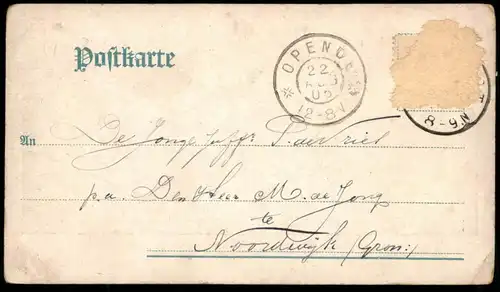 Postkarte
OPENDE
22
AUG
05
12-8V
8-9N
An
De Jonge juffr P. de Vries
p.a. Den Heer M. de Jong
te
Noordwijk (Gron:)